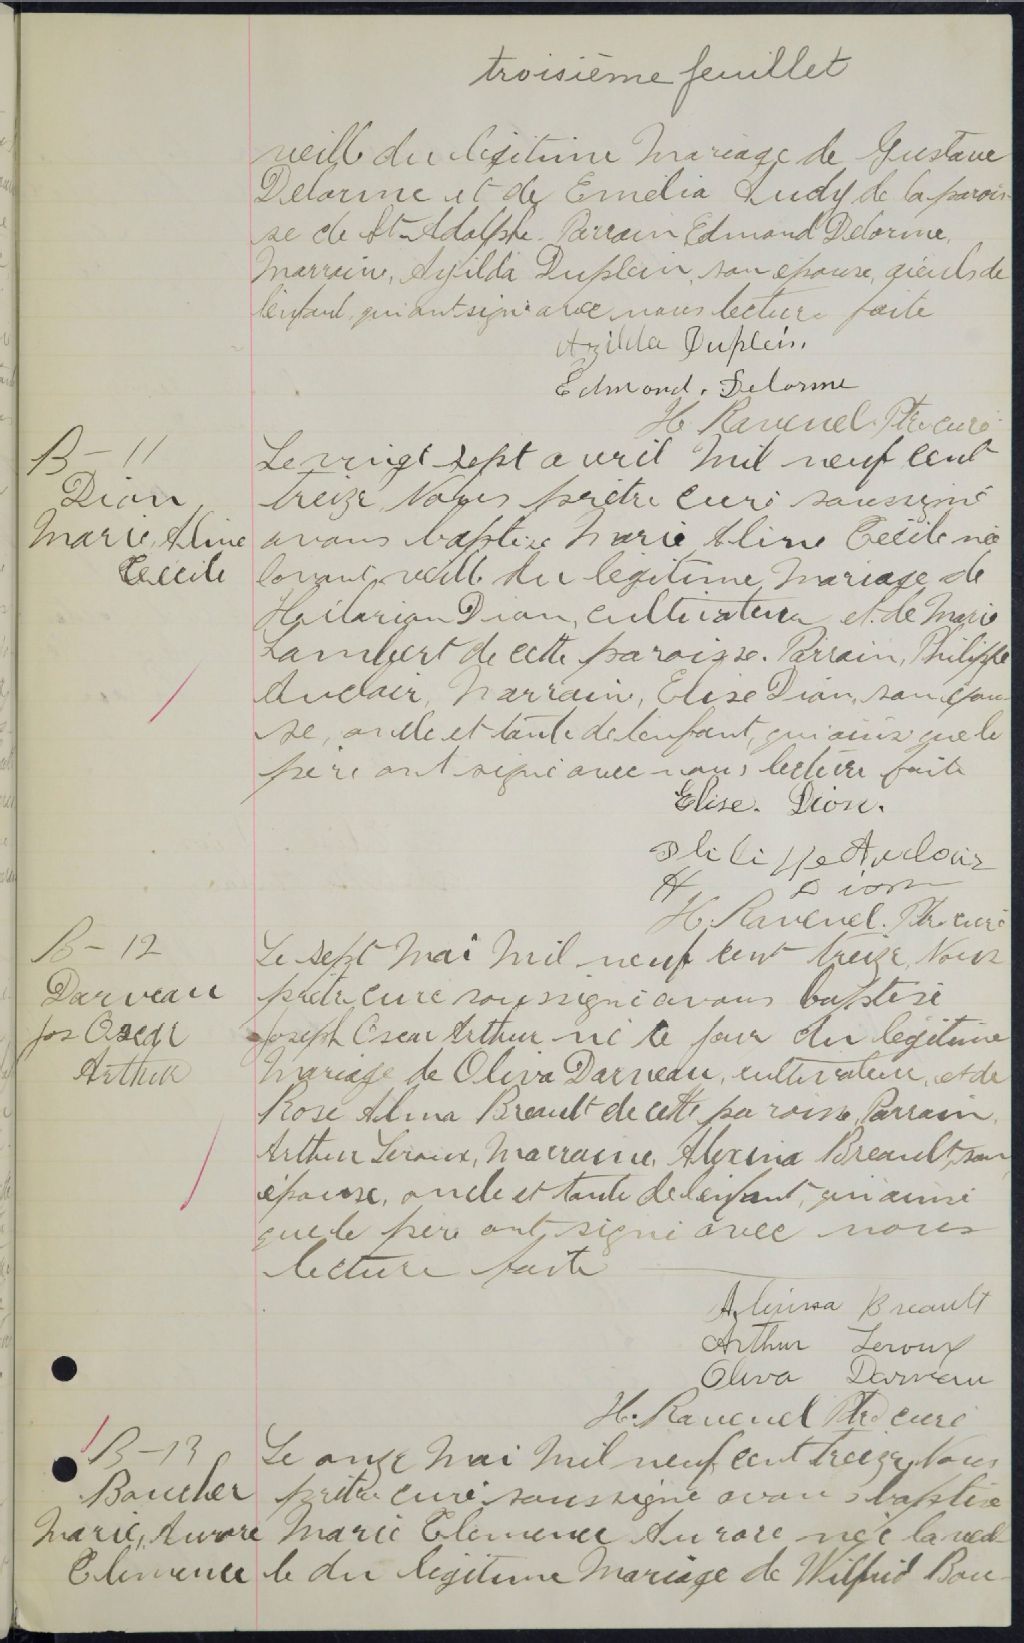 troisième feuillet
veille du légitime Mariage de Gustave
Delorme et de Emélia Ludy de la parois-
se de St-Adolphe. Parrain Edmond Delorme,
Marraine, Azilda Duplein, son épouse, aieuls de
l'enfant, qui ont signé avec nous lecture faite
Azilda Duplein.
Edmond. Delorme
H. Ravenel Ptre curé
B-11
Dion
Marie, Aline
Cecile
Le vingt sept avril Mil neuf cent
treize Nous prêtre curé soussigné
avons baptisé Marie Aline Cecile née
l'avant veille du légitime Mariage de
Hilarion Dion, cultivateur et de Marie
Lambert de cette paroisse. Parrain, Philippe
Auclair, Marraine, Elise Dion, son épou-
se, oncle et tante de l'enfant, qui ainsi que le
père ont signé avec nous lecture faite
Elise. Dion.
Philippe Auclair
H Dion
H. Ravenel. Ptre curé
B-12
Darveau
Jos Oscar
Arthur
Le sept Mai Mil neuf cent treize, Nous
prêtre curé soussigné avons baptisé
Joseph Oscar Arthur né ce jour du légitime
Mariage de Oliva Darveau, cultivateur, et de
Rose Alma Breault de cette paroisse, Parrain,
Arthur Leroux, Marraine, Alexina Breault, son
épouse, oncle et tante de l'enfant, qui ainsi
que le père ont signé avec nous
lecture faite
Alexina Breault
Arthur Leroux
Oliva Darveau
H. Ravenel Ptre curé
B-13
Boucher
Marie, Aurore
Clemence
Le onze Mai Mil neuf cent treize, Nous
prêtre curé soussigné avons baptisé
Marie Clemence Aurore née la veil-
le du légitime Mariage de Wilfrid Bou-